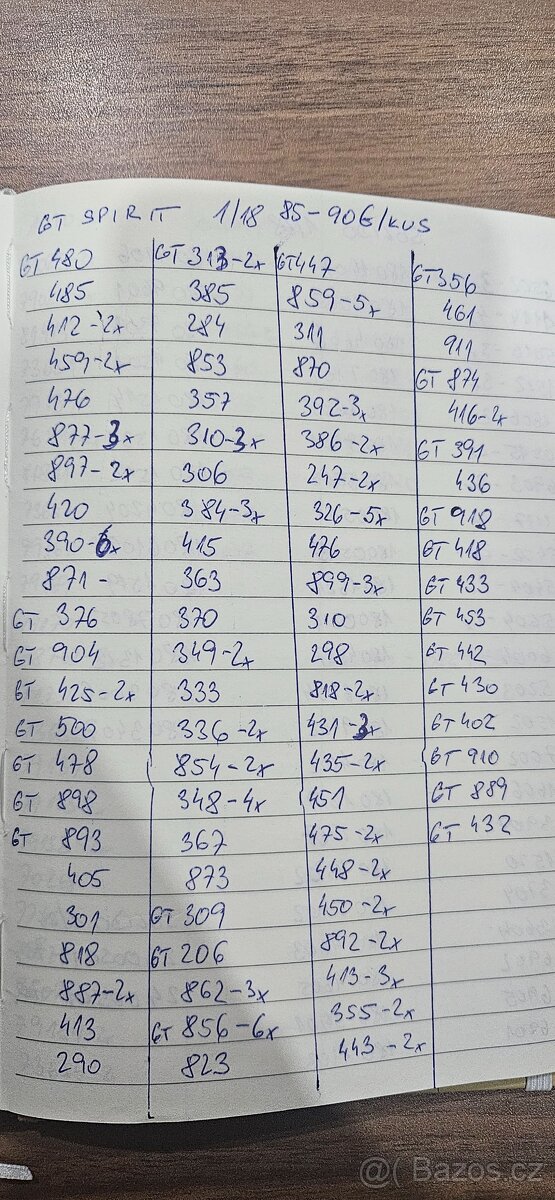 GT SPIRIT 1/18 85-90€/KUS
GT 480
485
412-2x
459-2x
476
877-3x
897-2x
420
390-6x
871-
GT 376
GT 904
GT 425-2x
GT 500
GT 478
GT 898
GT 893
405
301
818
887-2x
413
290
GT 313-2x
385
284
853
357
310-3x
306
384-3x
415
363
370
349-2x
333
336-2x
854-2x
348-4x
367
873
GT 309
GT 206
862-3x
GT 856-6x
823
GT 447
859-5x
311
870
392-3x
386-2x
247-2x
326-5x
476
899-3x
310
298
818-2x
431-3x
435-2x
451
475-2x
448-2x
450-2x
892-2x
413-3x
355-2x
443-2x
GT 356
461
911
GT 874
416-2x
GT 391
436
GT 918
GT 418
GT 433
GT 453
GT 442
GT 430
GT 402
GT 910
GT 889
GT 432
@ Bazos.cz